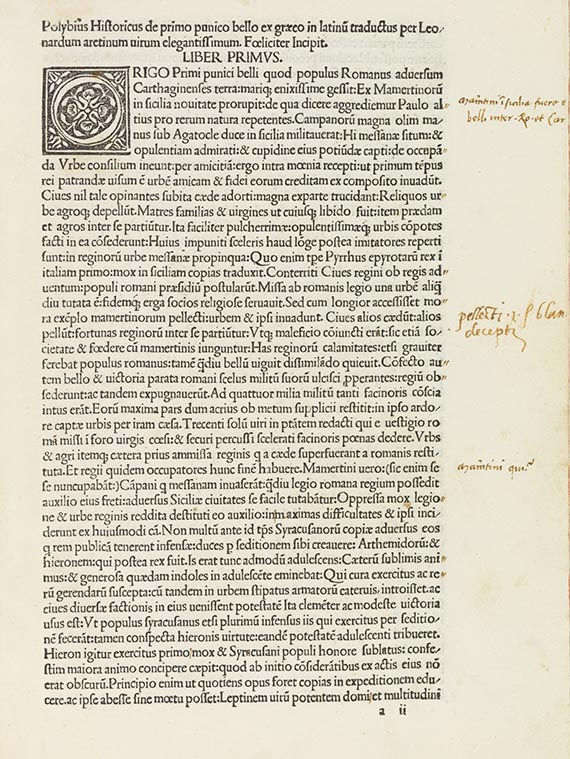 Polybius Historicus de primo punico bello ex græco in latinū traductus per Leo/
nardum aretinum uirum elegantissimum. Fœliciter Incipit.
LIBER PRIMVS.
ORIGO Primi punici belli quod populus Romanus aduersum
Carthaginenses terra:mariq; enixissime gessit:Ex Mamertinorū
in sicilia nouitate prorupit:de qua dicere aggrediemur Paulo al/
tius pro rerum natura repetentes. Campanorū magna olim ma/
nus sub Agatocle duce in sicilia militauerat: Hi messanæ situm:&
opulentiam admirati:& cupidine eius potiūdæ capti:de occupā/
da Vrbe consilium ineunt:per amicitiā:ergo intra mœnia recepti:ut primum tēpus
rei patrandæ uisum ē urbē amicam & fidei eorum creditam ex composito inuadūt.
Ciues nil tale opinantes subita cæde adorti:magna exparte trucidant:Reliquos ur/
be agroq; depellūt. Matres familias & uirgines ut cuiusq; libido fuit:item prædam
et agros inter se partiūtur. Ita faciliter pulcherrimæ:opulentissimæq; urbis cōpotes
facti in ea cōsederunt:Huius impuniti sceleris haud lōge postea imitatores reperti
sunt:in reginorū urbe messanæ propinqua: Quo enim tpe Pyrrhus epyrotarū rex ī
italiam primo:mox in siciliam copias traduxit. Conterriti Ciues regini ob regis ad/
uentum:populi romani præsidiū postularūt. Missa ab romanis legio una urbē aliq̄
diu tutata ē:fidemq; erga socios religiose seruauit. Sed cum longior accessisset mo/
ra exēplo mamertinorum pellecti:urbem & ipsi inuadunt. Ciues alios cædūt:alios
pellūt:fortunas reginorū inter se partiūtur: Vtq; maleficio cōiuncti erāt:sic etiā so/
cietate & fœdere cū mamertinis iunguntur: Has reginorū calamitates:etsi grauiter
ferebat populus romanus:tamē q̄diu bellū uiguit dissimilādo quieuit. Cōfecto au/
tem bello & uictoria parata romani scelus militū suorū ulcisci pperantes:regiū ob/
sederunt:ac tandem expugnauerūt. Ad quattuor milia militū tanti facinoris cōscia
intus erāt. Eorū maxima pars dum acrius ob metum supplicii restitit:in ipso ardo/
re captæ urbis per iram cæsa. Trecenti solū uiri in ptātem redacti qui e uestigio ro
mā missi ī foro uirgis cœsi:& securi percussi scelerati facinoris pœnas dedere. Vrbs
& agri itemq; cætera prius ammissa reginis q a cæde superfuerant a romanis resti/
tuta. Et regii quidem occupatores hunc finē habuere. Mamertini uero:(sic enim se
se nuncupabāt:)Cāpani q messanam inuaserāt:q̄diu legio romana regium possedit
auxilio eius freti:aduersus Siciliæ ciuitates se facile tutabātur: Oppressa mox legio/
ne & urbe reginis reddita destituti eo auxilio:in maximas difficultates & ipsi inci/
derunt ex huiusmodi cā. Non multū ante id tps Syracusanorū copiæ aduersus eos
q rem publicā tenerent infensæ:duces p seditionem sibi creauere: Arthemidorū:&
hieronem:qui postea rex fuit. Is erat tunc admodū adulescens: Cæterū sublimis ani
mus:& generosa quædam indoles in adulescēte eminebat: Qui cura exercitus ac re/
rū gerendarū suscepta:cū tandem in urbem stipatus armatorū cateruis, introisset.ac
ciues diuersæ factionis in eius uenissent potestatē Ita clemēter ac modeste uictoria
usus est: Vt populus syracusanus etsi plurimū infensus iis qui exercitus per seditio/
nē fecerāt:tamen conspecta hieronis uirtute:eandē potestatē adulescenti tribueret.
Hieron igitur exercitus primo:mox & Syracusani populi honore sublatus: confe/
stim maiora animo concipere cœpit:quod ab initio cōsiderātibus ex actis eius nō
erat obscurū. Principio enim ut quotiens opus foret copias in expeditionem edu/
cere.ac ipse abesse sine mœtu posset:Leptinem uirū potentem domi et multitudini
a ii
mamtini ī sicilia fuere
bello inter
pellecti
decepti
mamtini